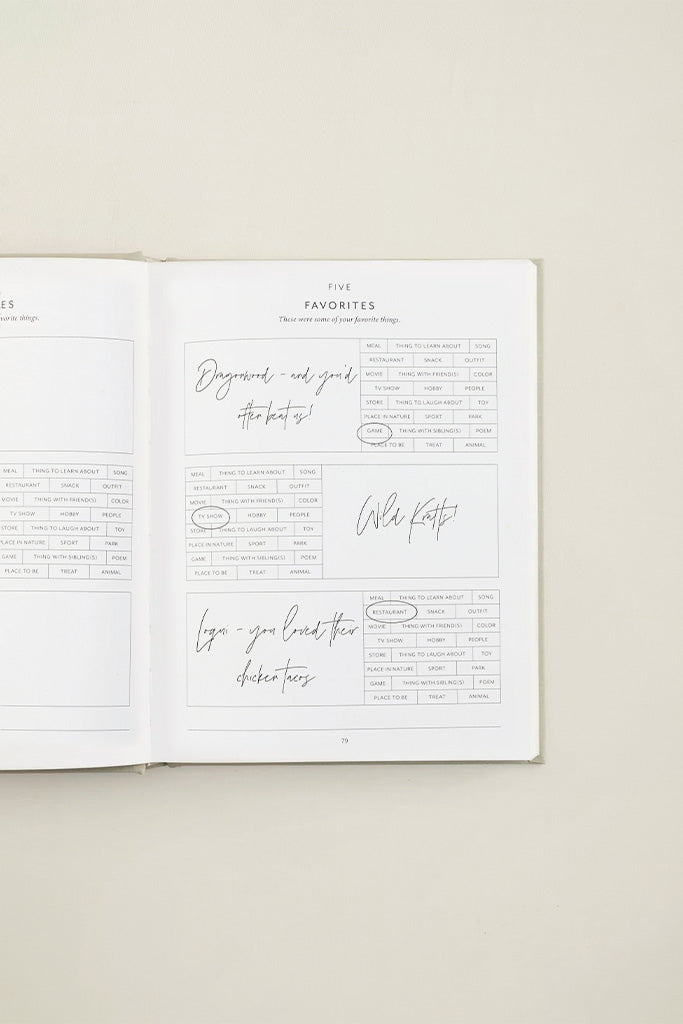 ES
vorite things.
MEAL THING TO LEARN ABOUT SONG
RESTAURANT SNACK OUTFIT
MOVIE THING WITH FRIEND(S) COLOR
TV SHOW HOBBY PEOPLE
STORE THING TO LAUGH ABOUT TOY
PLACE IN NATURE SPORT PARK
GAME THING WITH SIBLING(S) POEM
PLACE TO BE TREAT ANIMAL
FIVE
FAVORITES
These were some of your favorite things.
Dragonwood - and you'd
often beat us!
MEAL THING TO LEARN ABOUT SONG
RESTAURANT SNACK OUTFIT
MOVIE THING WITH FRIEND(S) COLOR
TV SHOW HOBBY PEOPLE
STORE THING TO LAUGH ABOUT TOY
PLACE IN NATURE SPORT PARK
GAME THING WITH SIBLING(S) POEM
PLACE TO BE TREAT ANIMAL
MEAL THING TO LEARN ABOUT SONG
RESTAURANT SNACK OUTFIT
MOVIE THING WITH FRIEND(S) COLOR
TV SHOW HOBBY PEOPLE
STORE THING TO LAUGH ABOUT TOY
PLACE IN NATURE SPORT PARK
GAME THING WITH SIBLING(S) POEM
PLACE TO BE TREAT ANIMAL
Wild Kratts!
Loqui - you loved their
chicken tacos
MEAL THING TO LEARN ABOUT SONG
RESTAURANT SNACK OUTFIT
MOVIE THING WITH FRIEND(S) COLOR
TV SHOW HOBBY PEOPLE
STORE THING TO LAUGH ABOUT TOY
PLACE IN NATURE SPORT PARK
GAME THING WITH SIBLING(S) POEM
PLACE TO BE TREAT ANIMAL
79